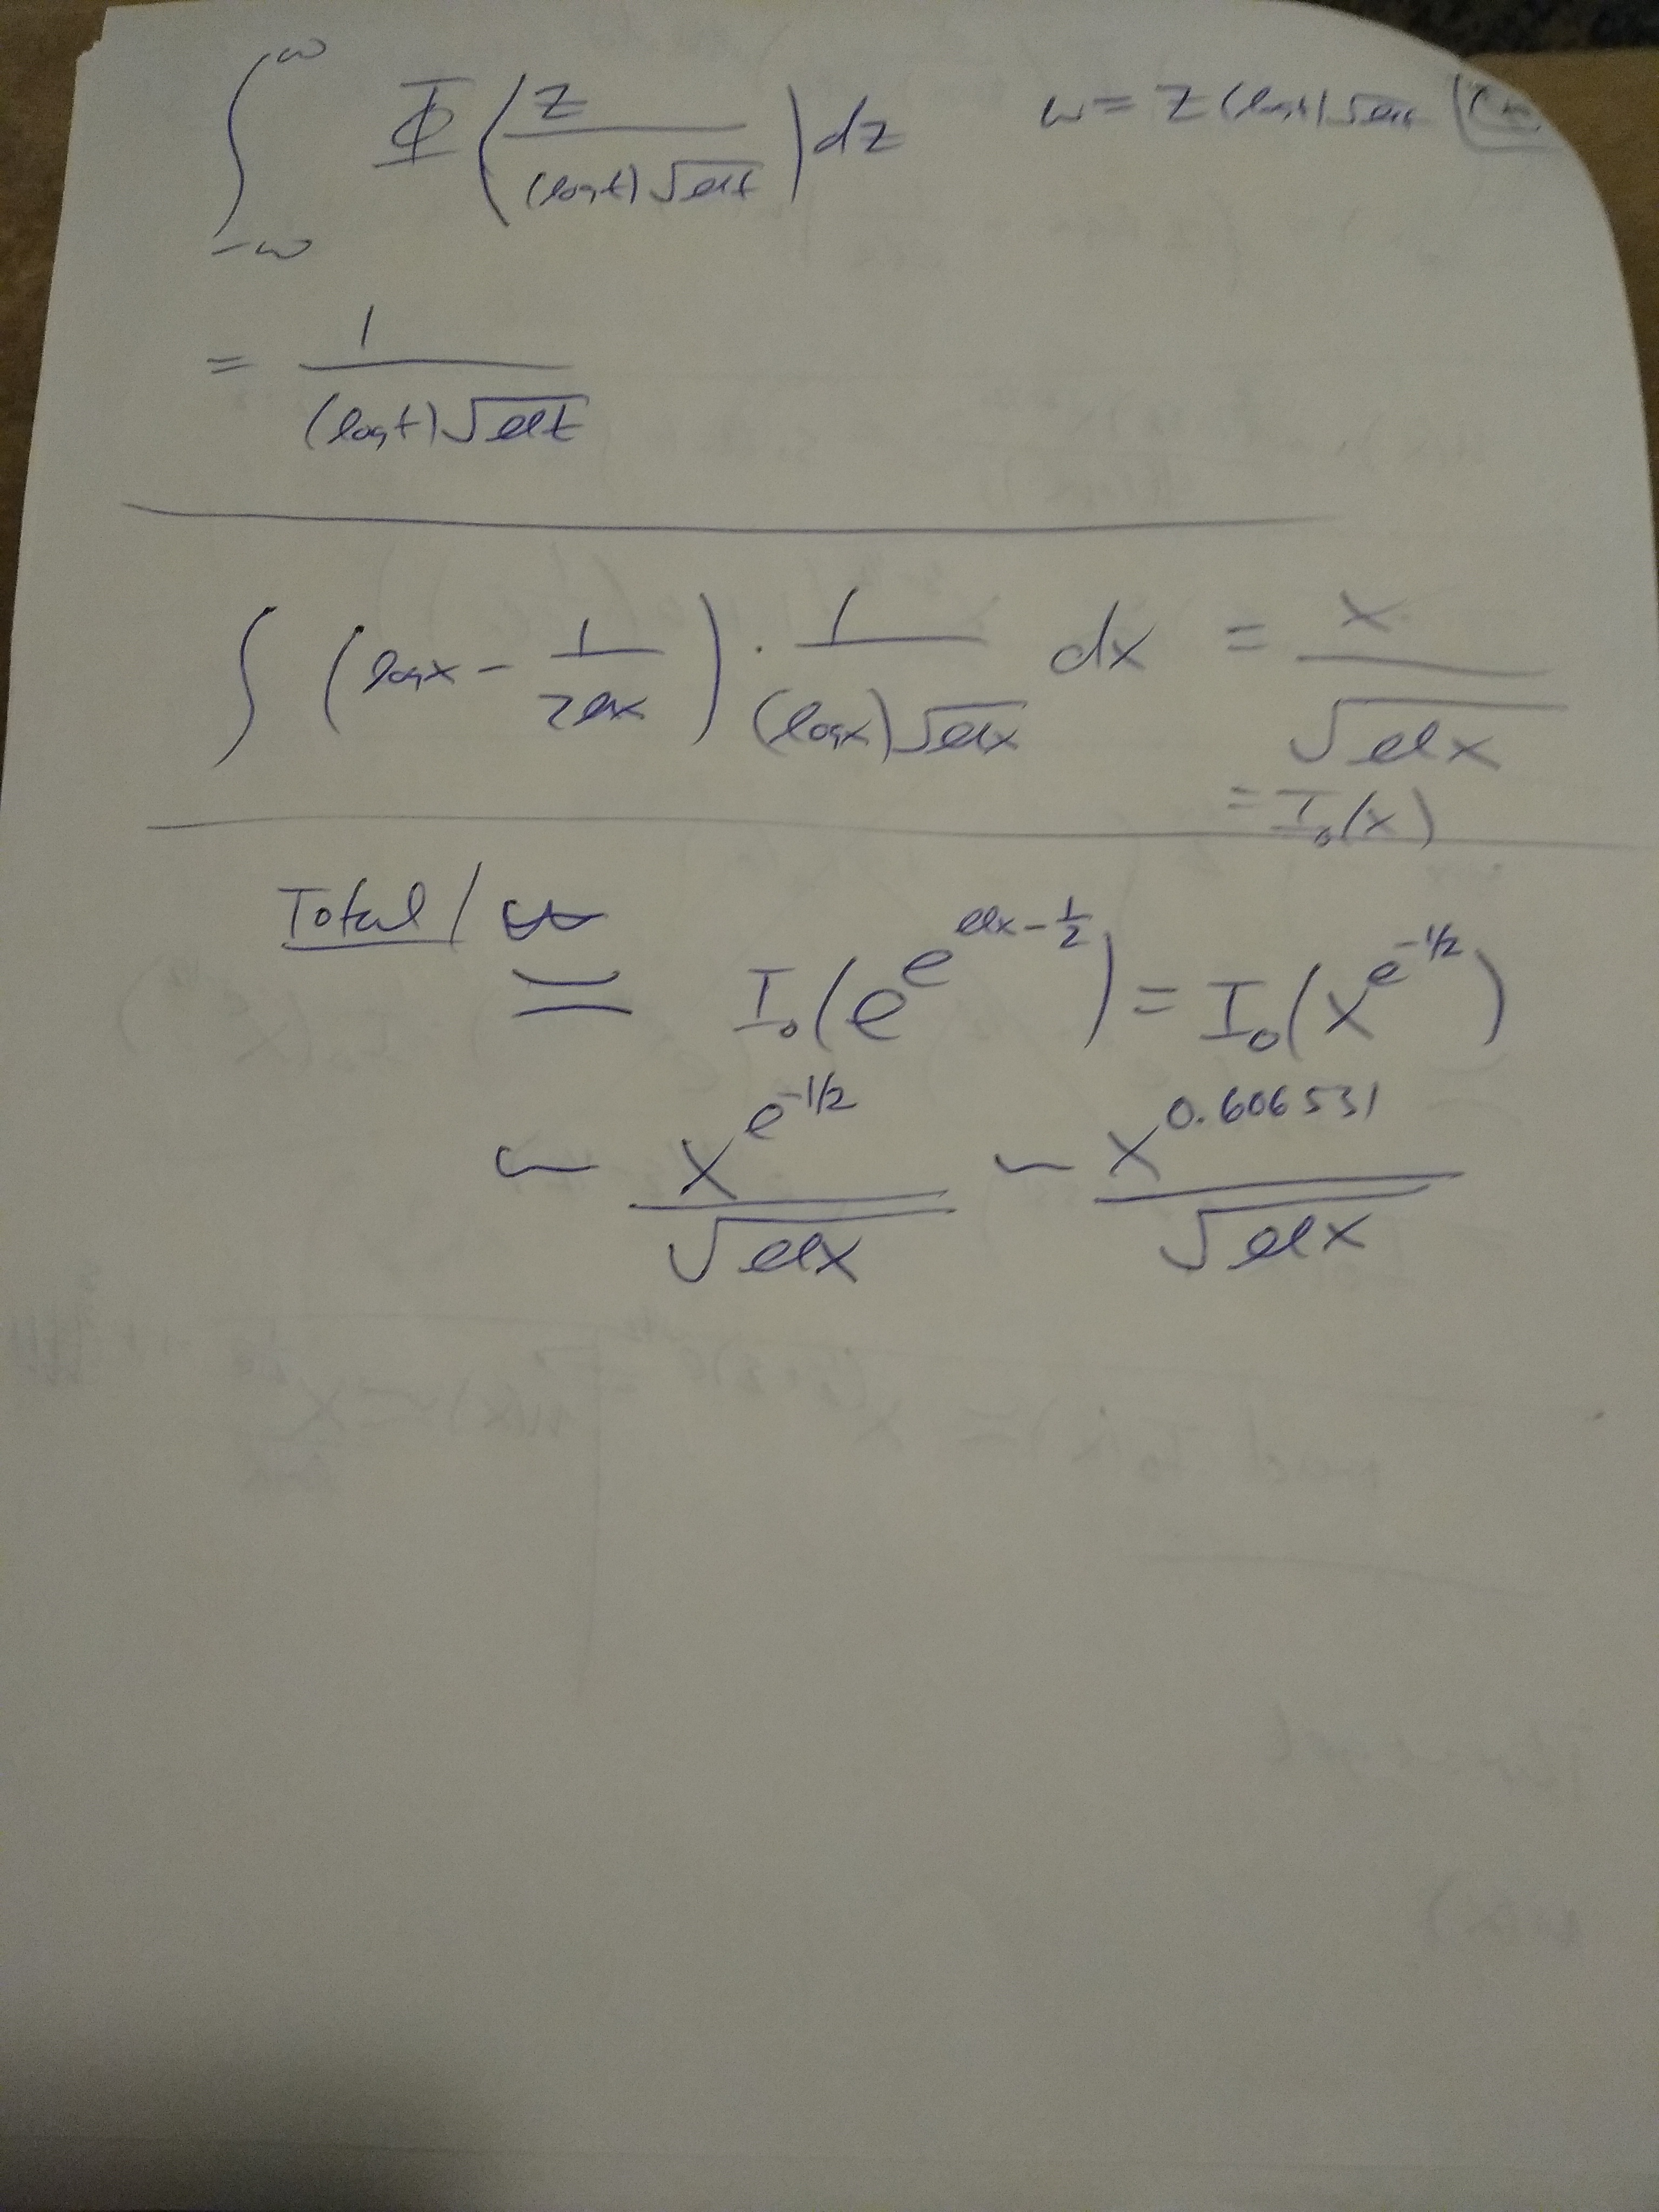 ∫_{-∞}^{∞} Φ( z / ((log t) √(ℓℓt)) ) dz w = z (log t) √(ℓℓt)
= 1 / ((log t) √(ℓℓt))
∫ ( log x − 1 / (2ℓℓx) ) · 1 / ((log x) √(ℓℓx)) dx = x / √(ℓℓx)
= I₀(x)
Total /
≍ I₀( e^{e^{ℓℓx − 1/2}} ) = I₀( x^{e^{-1/2}} )
∼ x^{e^{-1/2}} / √(ℓℓx) ∼ x^{0.606531} / √(ℓℓx)